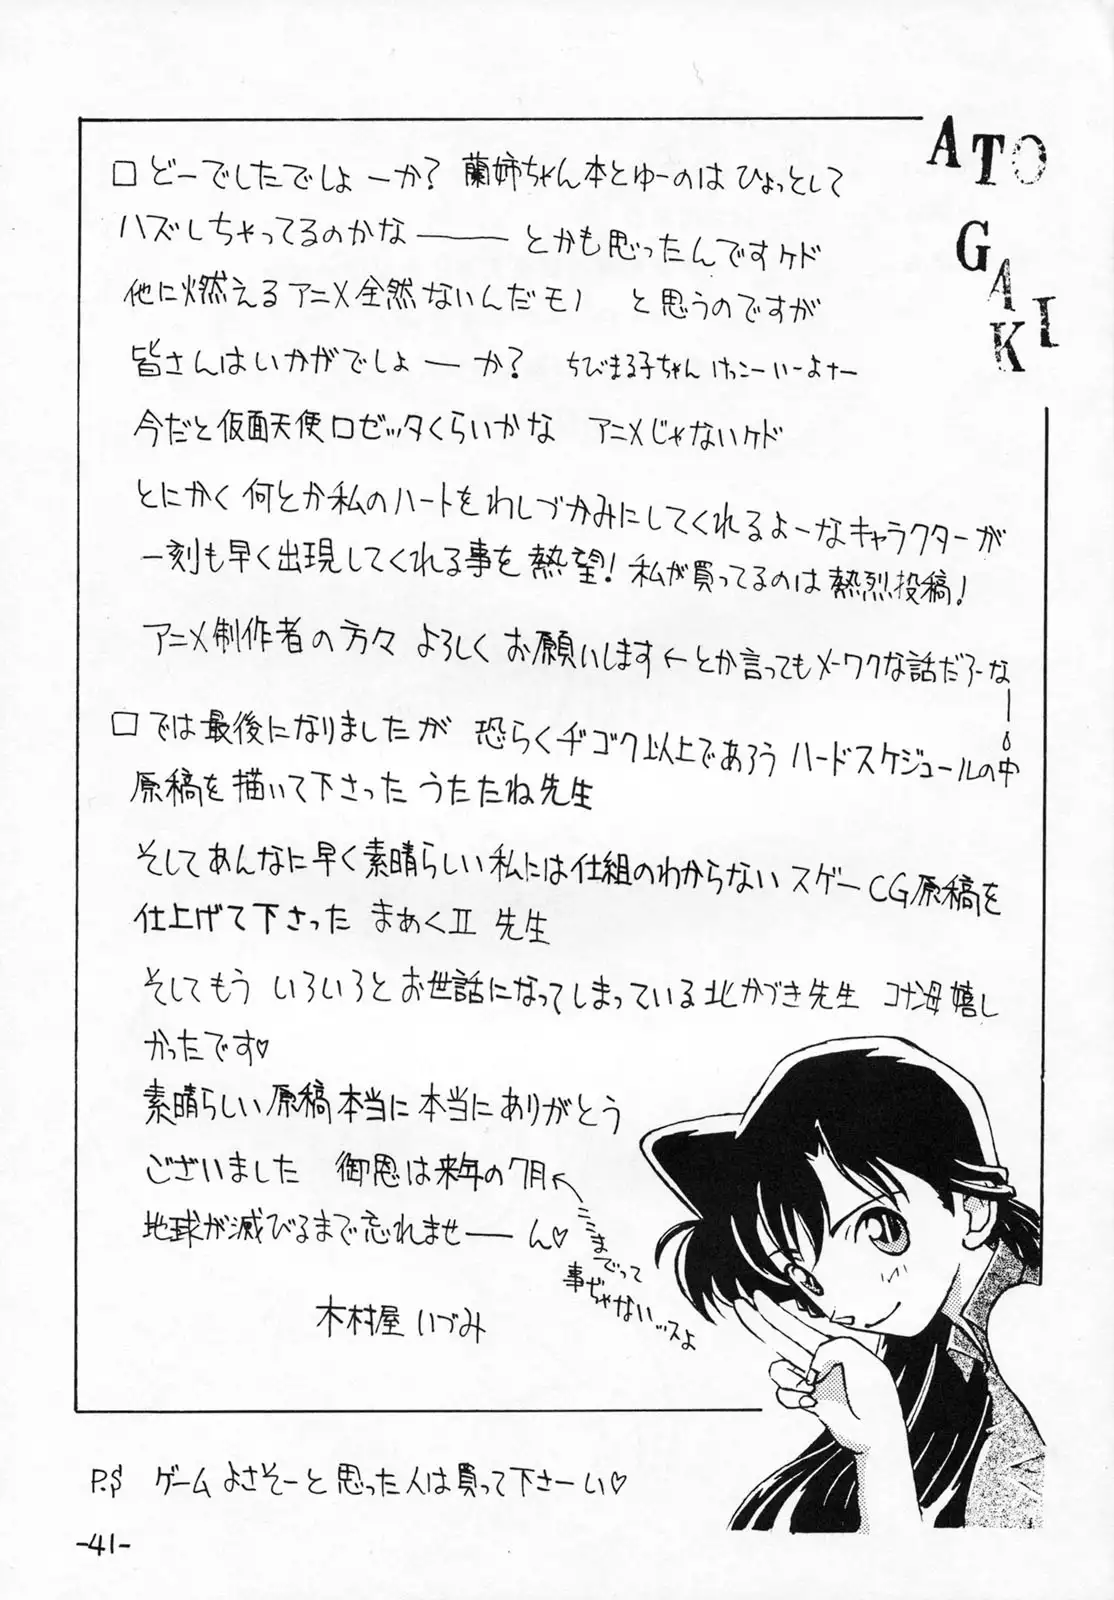 ATO
GAKI
□ どーでしたでしょーか? 蘭姉ちゃん本とゆーのは ひょっとして
ハズしちゃってるのかな ── とかも思ったんですケド
他に燃えるアニメ全然ないんだモノ と思うのですが
皆さんはいかがでしょーか? ちびまる子ちゃん けっこーいーよナー
今だと仮面天使ロゼッタくらいかな アニメじゃないケド
とにかく 何とか私のハートをわしづかみにしてくれるよーなキャラクターが
一刻も早く出現してくれる事を 熱望! 私が買ってるのは熱烈投稿!
アニメ制作者の方々 よろしく お願いします ← とか言ってもメーワクな話だろーなー
□ では最後になりましたが 恐らくヂゴク以上であろう ハードスケジュールの中
原稿を描いて下さった うたたね先生
そしてあんなに早く素晴らしい私には仕組のわからない スゲーCG原稿を
仕上げて下さった まあくII 先生
そしてもう いろいろとお世話になってしまっている北かづき先生 コナン母嬉し
かったです♡
素晴らしい原稿本当に本当にありがとう
ございました 御恩は来年の7月←ここまでって
事ぢゃないッスよ
地球が滅びるまで忘れませーーん♡
木村屋いづみ
P.S ゲームよさそーと思った人は買って下さーい♡
-41-